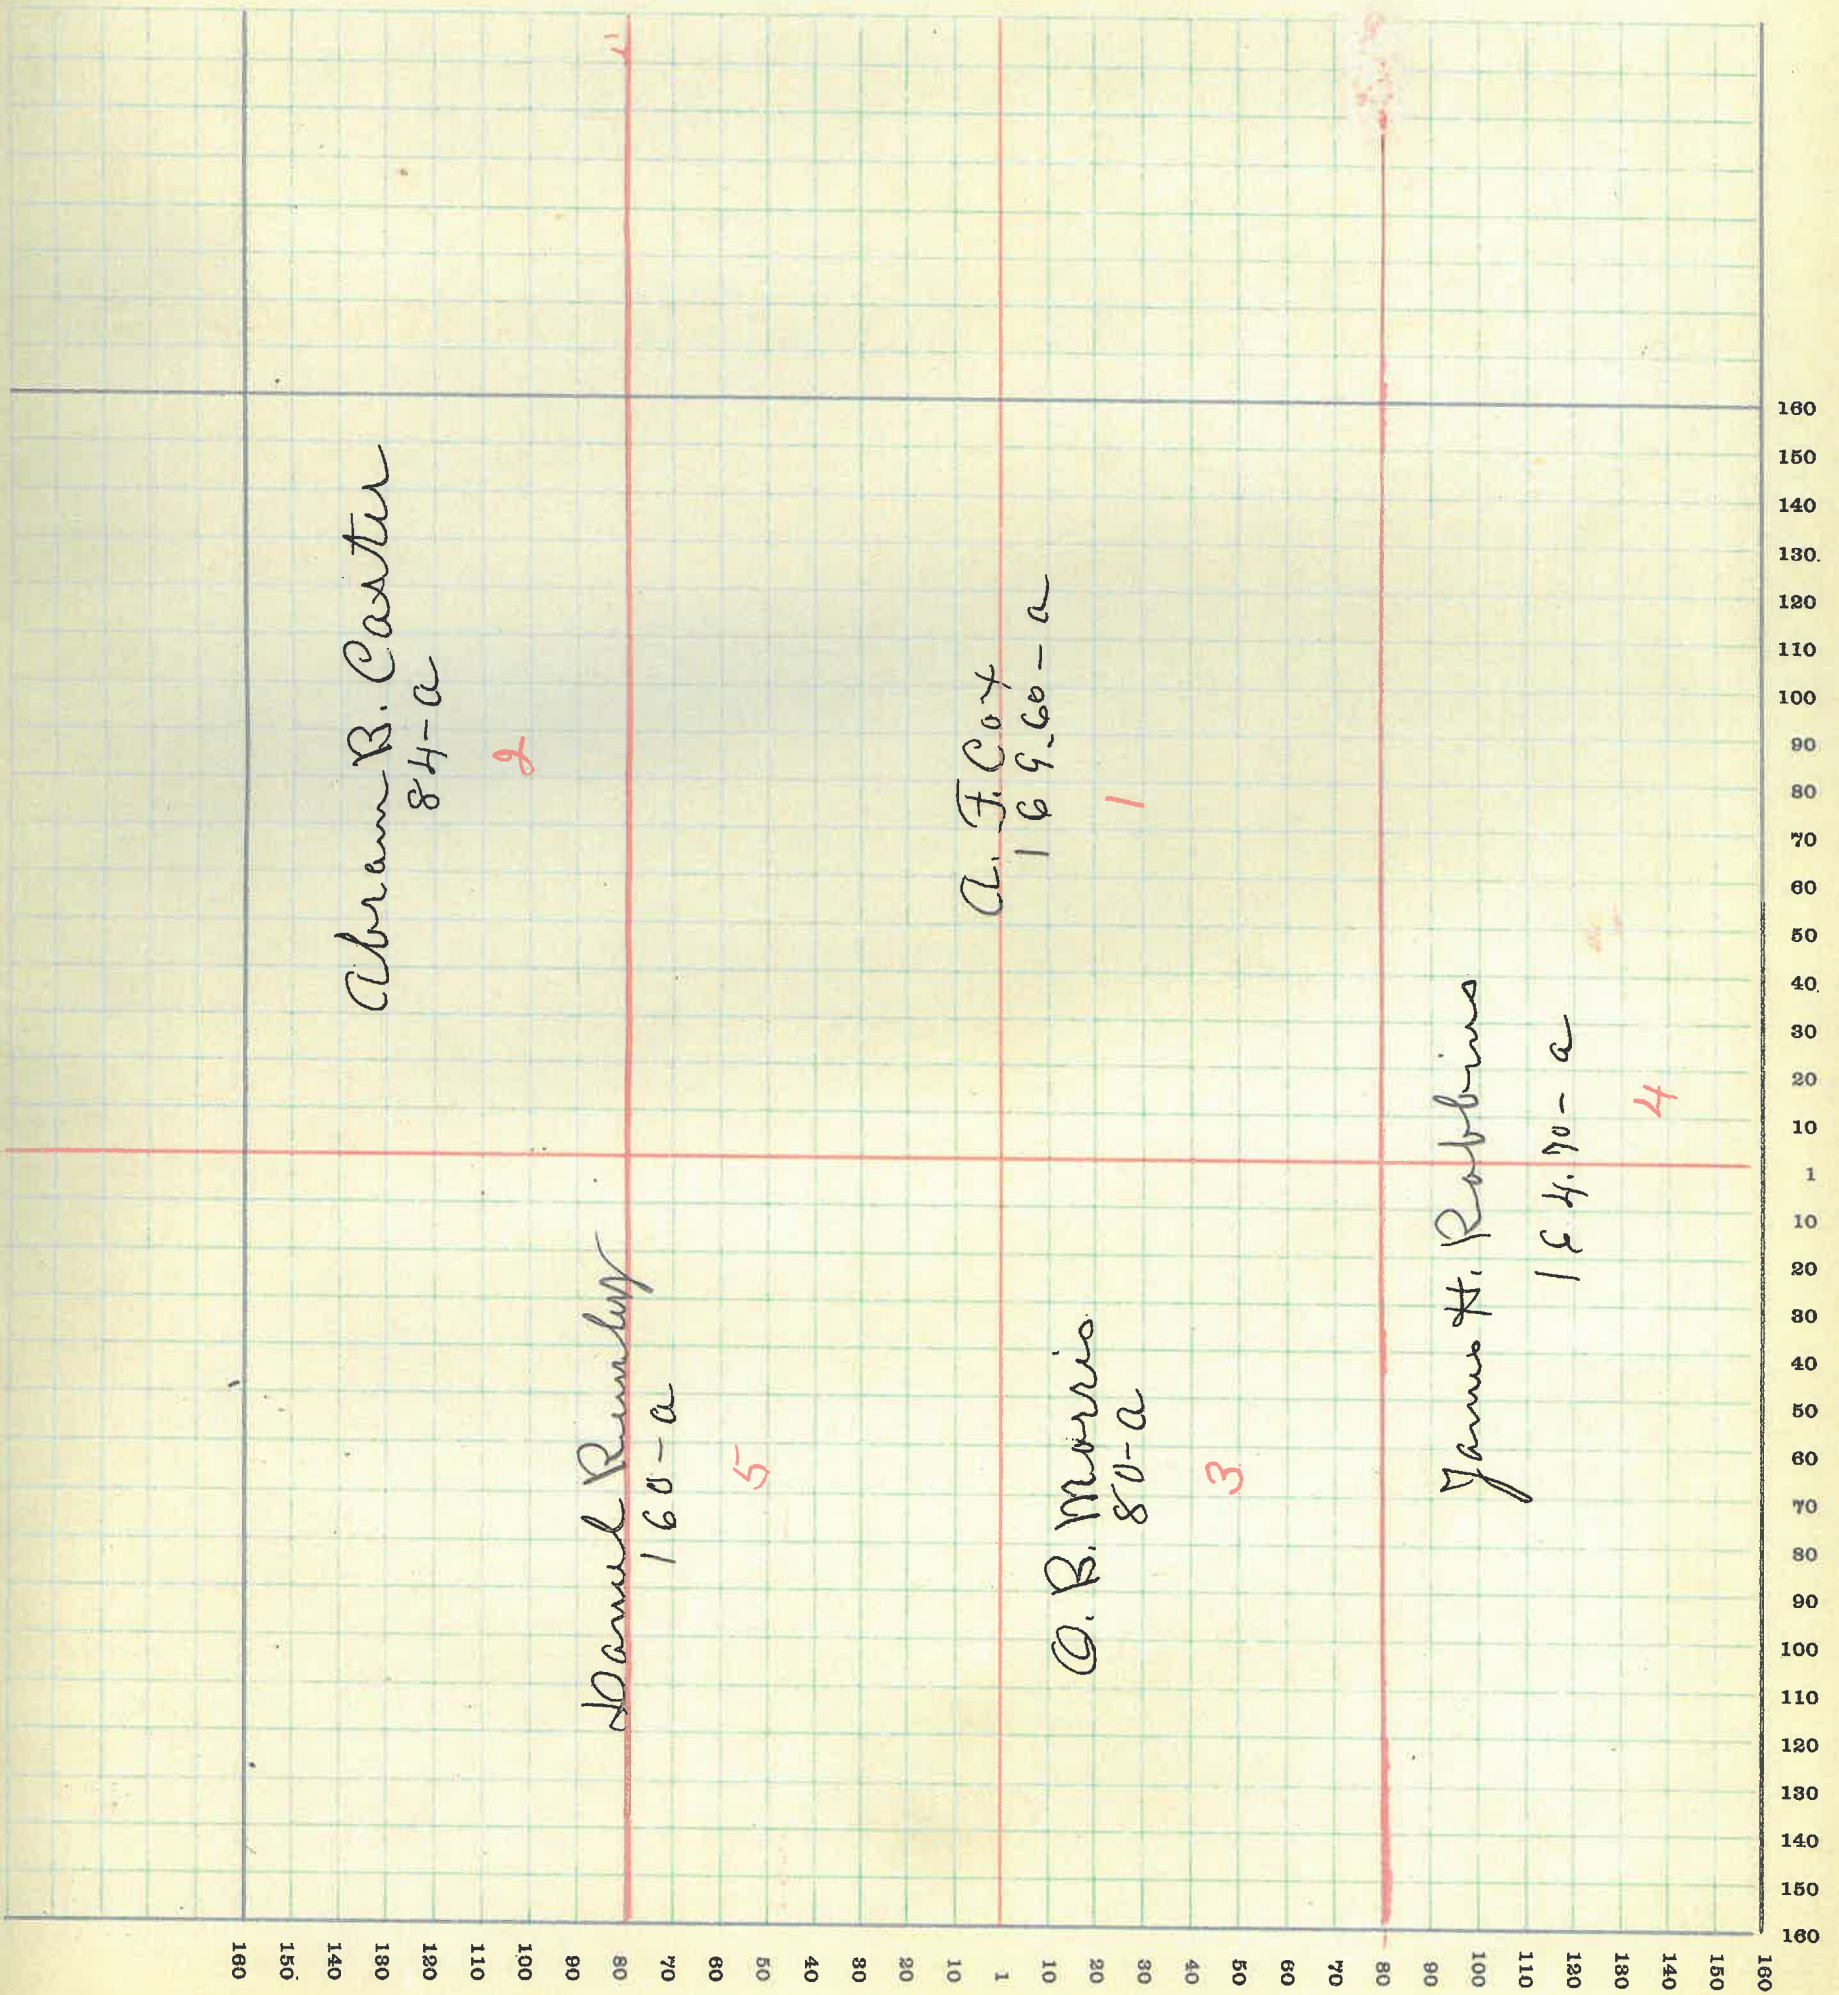 Abram B. Carter
84-a
2
A. F. Cox
169.60-a
1
Daniel Rumley
160-a
5
O. B. Morris
80-a
3
James H. Robbins
164.70-a
4
160
150
140
130
120
110
100
90
80
70
60
50
40
30
20
10
1
10
20
30
40
50
60
70
80
90
100
110
120
130
140
150
160
160
150
140
130
120
110
100
90
80
70
60
50
40
30
20
10
1
10
20
30
40
50
60
70
80
90
100
110
120
130
140
150
160